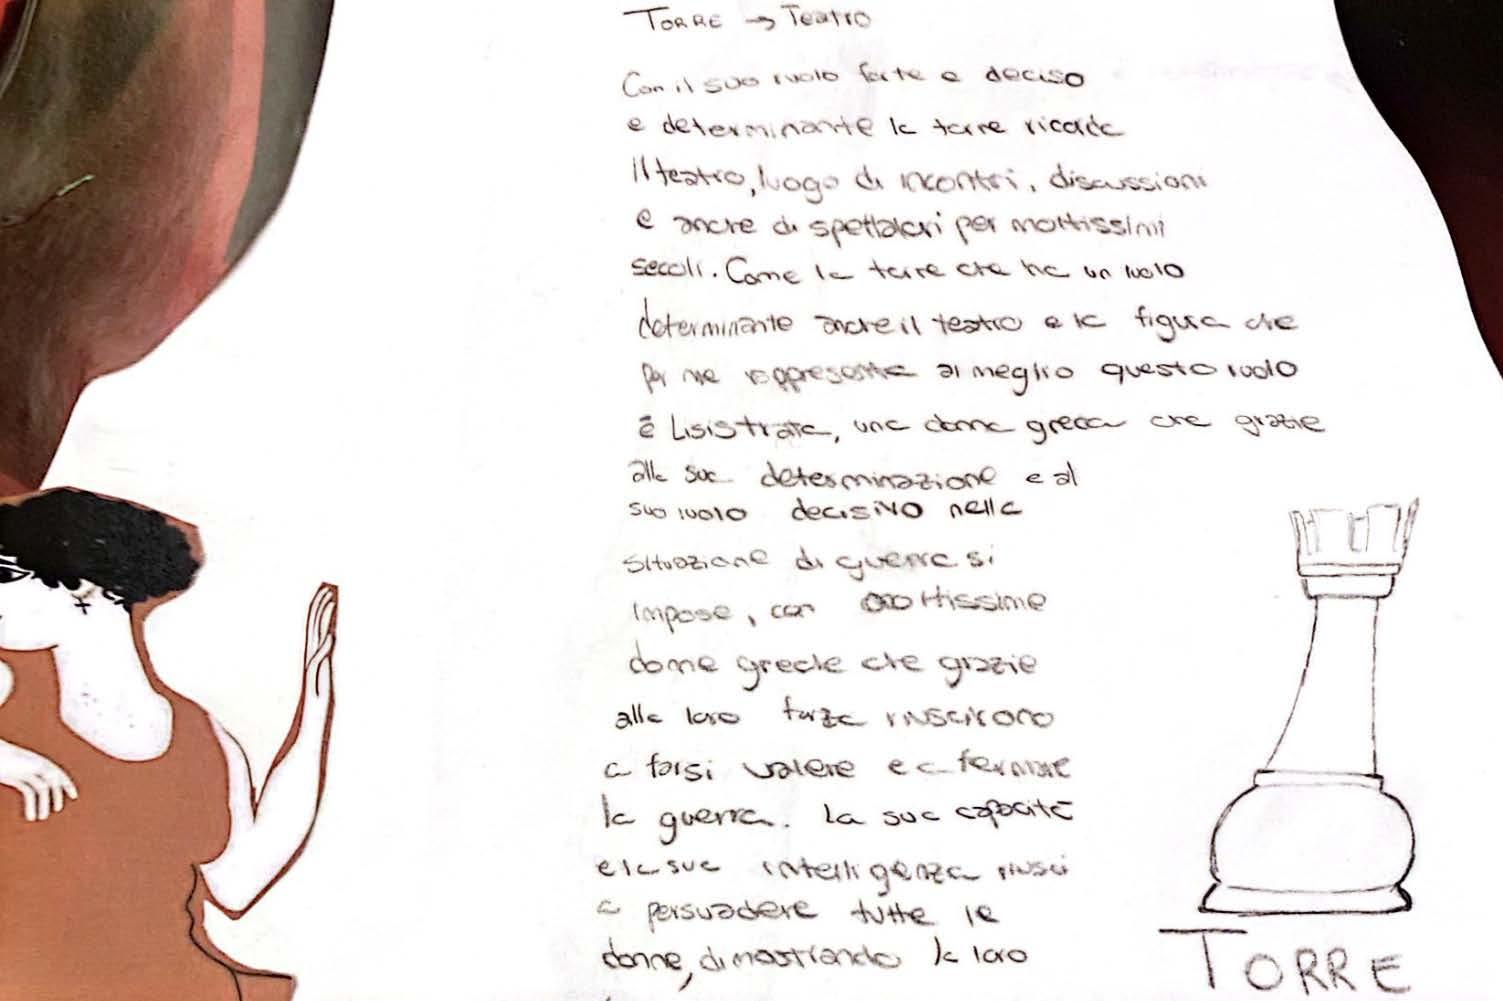 TORRE → Teatro
Con il suo ruolo forte e deciso
e determinante la torre ricorda
il teatro, luogo di incontri, discussioni
e anche di spettacoli per moltissimi
secoli. Come la torre che ha un ruolo
determinante anche il teatro e la figura che
per me rappresenta al meglio questo ruolo
è Lisistrata, una donna greca che grazie
alla sua determinazione e al
suo ruolo decisivo nella
situazione di guerra si
impose, con moltissime
donne greche che grazie
alla loro forza riuscirono
a farsi valere e a fermare
la guerra. La sua capacità
e la sua intelligenza riuscì
a persuadere tutte le
donne, dimostrando la loro
TORRE